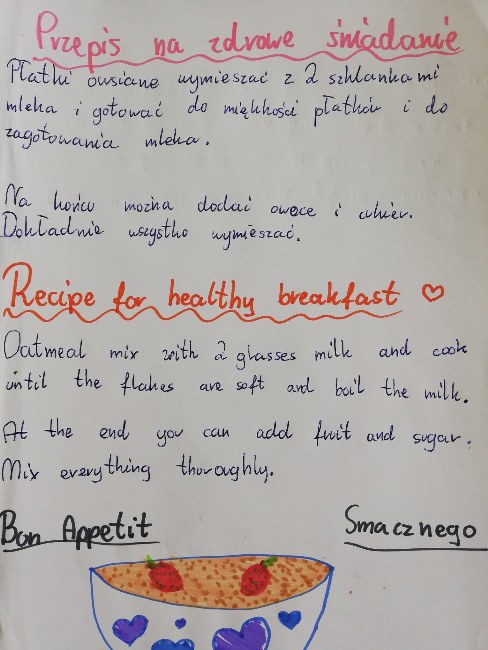 Przepis na zdrowe śniadanie
Płatki owsiane wymieszać z 2 szklankami
mleka i gotować do miękkości płatków i do
zagotowania mleka.
Na końcu można dodać owoce i cukier.
Dokładnie wszystko wymieszać.
Recipe for healthy breakfast ♡
Oatmeal mix with 2 glasses milk and cook
until the flakes are soft and boil the milk.
At the end you can add fruit and sugar.
Mix everything thoroughly.
Bon Appetit Smacznego